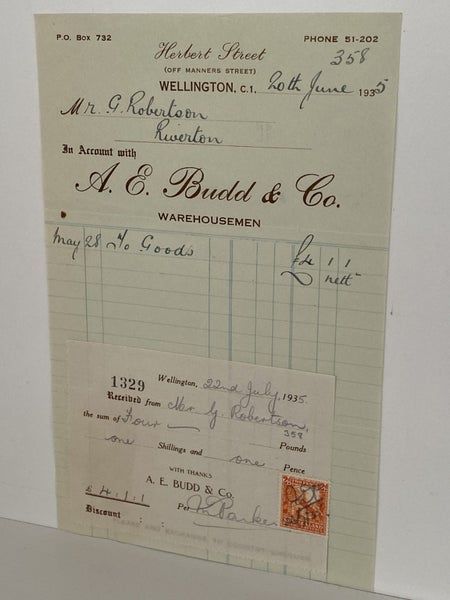 P.O. Box 732
PHONE 51-202
Herbert Street
358
(OFF MANNERS STREET)
WELLINGTON, C.1. 20th June 1935
Mr. G. Robertson
Riverton
In Account with
A. E. Budd & Co.
WAREHOUSEMEN
May 28 Goods £4 1 1
nett
1329
Wellington, 22nd July, 1935.
Received from Mr G. Robertson,
358
the sum of Four Pounds
one Shillings and one Pence
WITH THANKS
A. E. BUDD & Co.
£ 4.1.1
Per Parker
Discount : :